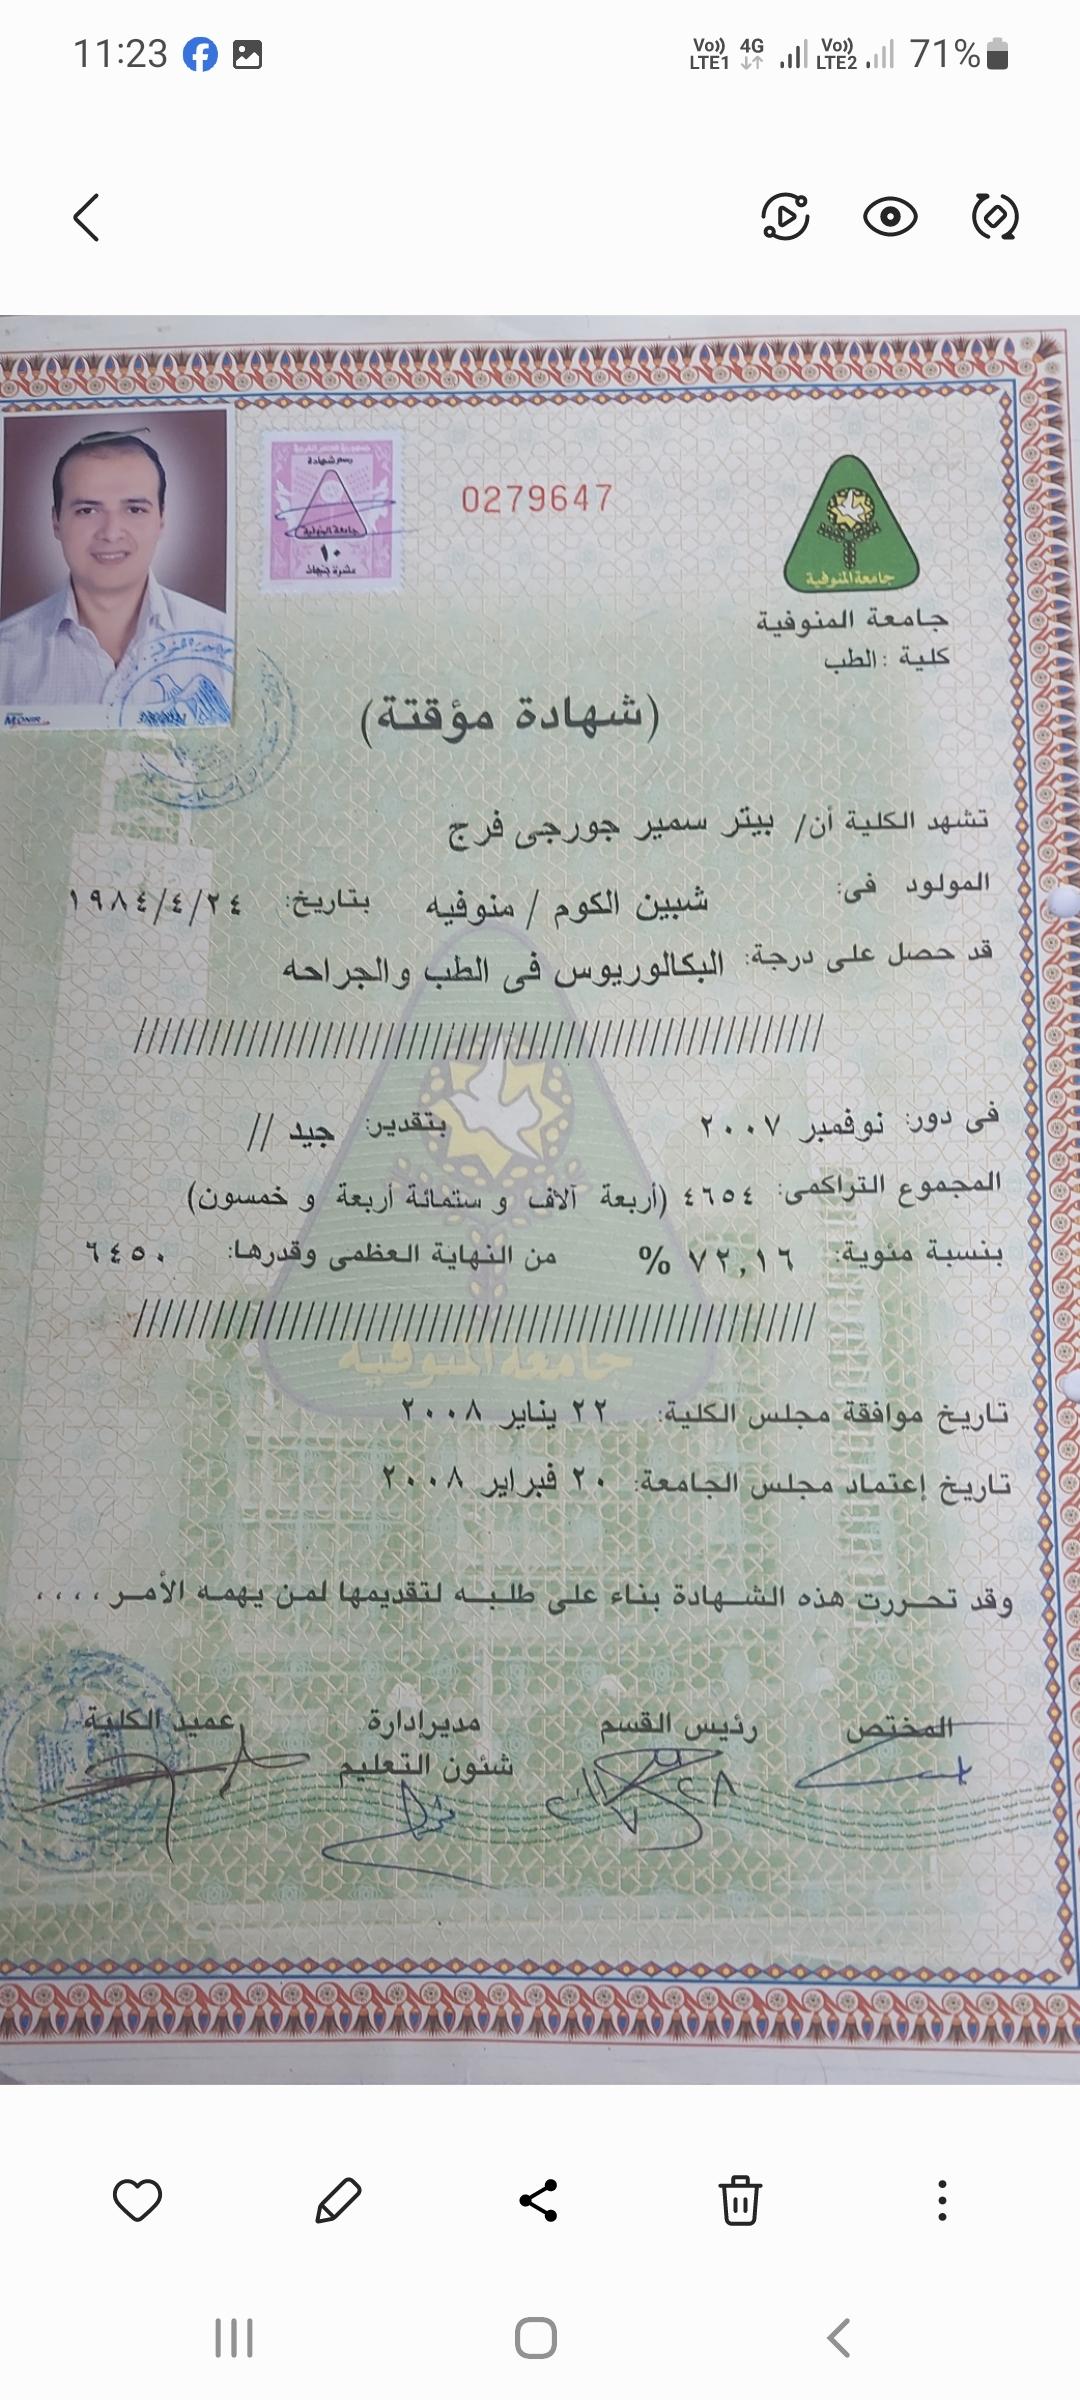 11:23
Vo)) LTE1 4G Vo)) LTE2 71%
رسم شهادة
جامعة المنوفية
١٠
عشرة جنيهات
0279647
جامعة المنوفية
جامعة المنوفية
كلية : الطب
MONIR
(شهادة مؤقتة)
تشهد الكلية أن/ بيتر سمير جورجى فرج
المولود فى: شبين الكوم / منوفيه بتاريخ: ١٩٨٤/٤/٢٤
قد حصل على درجة: البكالوريوس فى الطب والجراحه
//////////////////////////////////////////////////////////
فى دور: نوفمبر ٢٠٠٧ بتقدير: جيد //
المجموع التراكمى: ٤٦٥٤ (أربعة آلاف و ستمائة أربعة و خمسون)
بنسبة مئوية: ٧٢,١٦ % من النهاية العظمى وقدرها: ٦٤٥٠
//////////////////////////////////////////////////////////
جامعة المنوفية
تاريخ موافقة مجلس الكلية: ٢٢ يناير ٢٠٠٨
تاريخ إعتماد مجلس الجامعة: ٢٠ فبراير ٢٠٠٨
وقد تحررت هذه الشهادة بناء على طلبه لتقديمها لمن يهمه الأمر ،،،،
المختص رئيس القسم مديرإدارة عميد الكلية
شئون التعليم